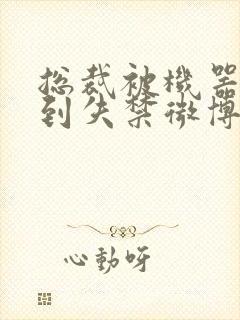 总裁被機器
到失禁微博
心動呀